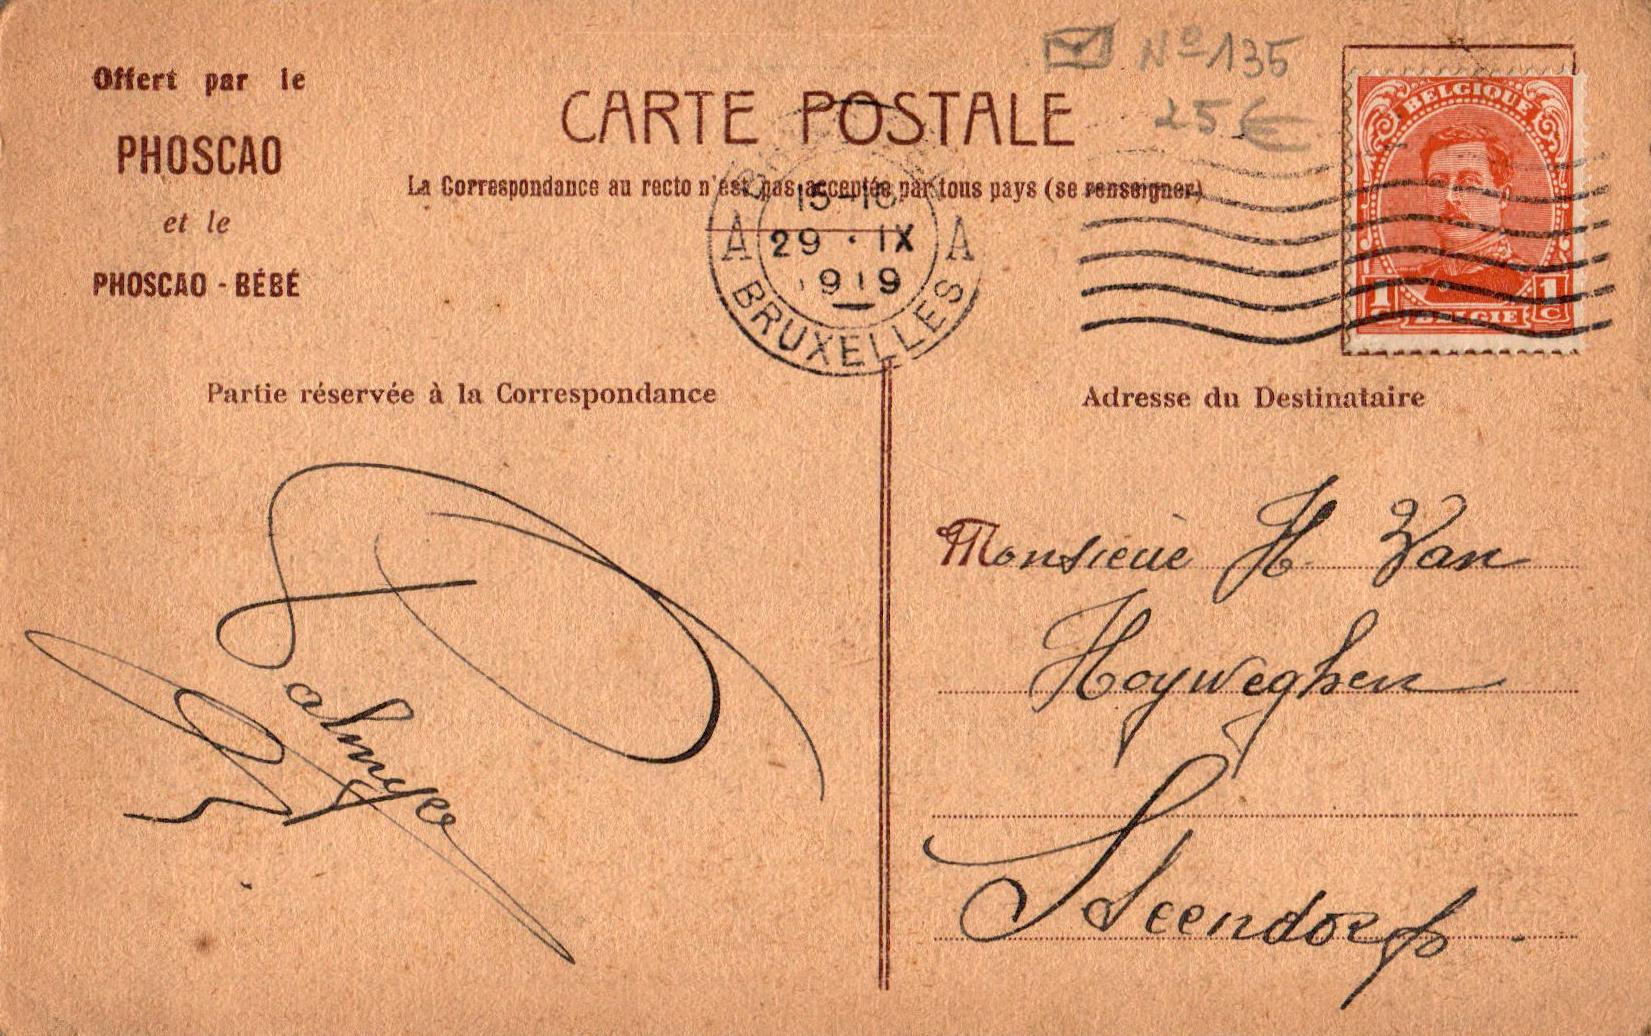 Offert par le
PHOSCAO
et le
PHOSCAO - BÉBÉ
CARTE POSTALE
La Correspondance au recto n'est pas acceptée par tous pays (se renseigner)
Nº 135
25€
BELGIQUE
1 C 1 C
BELGIË
15-16
A 29 · IX A
1919
BRUXELLES
Partie réservée à la Correspondance
Adresse du Destinataire
Monsieur H. Van
Hoyweghen
Steendorp.